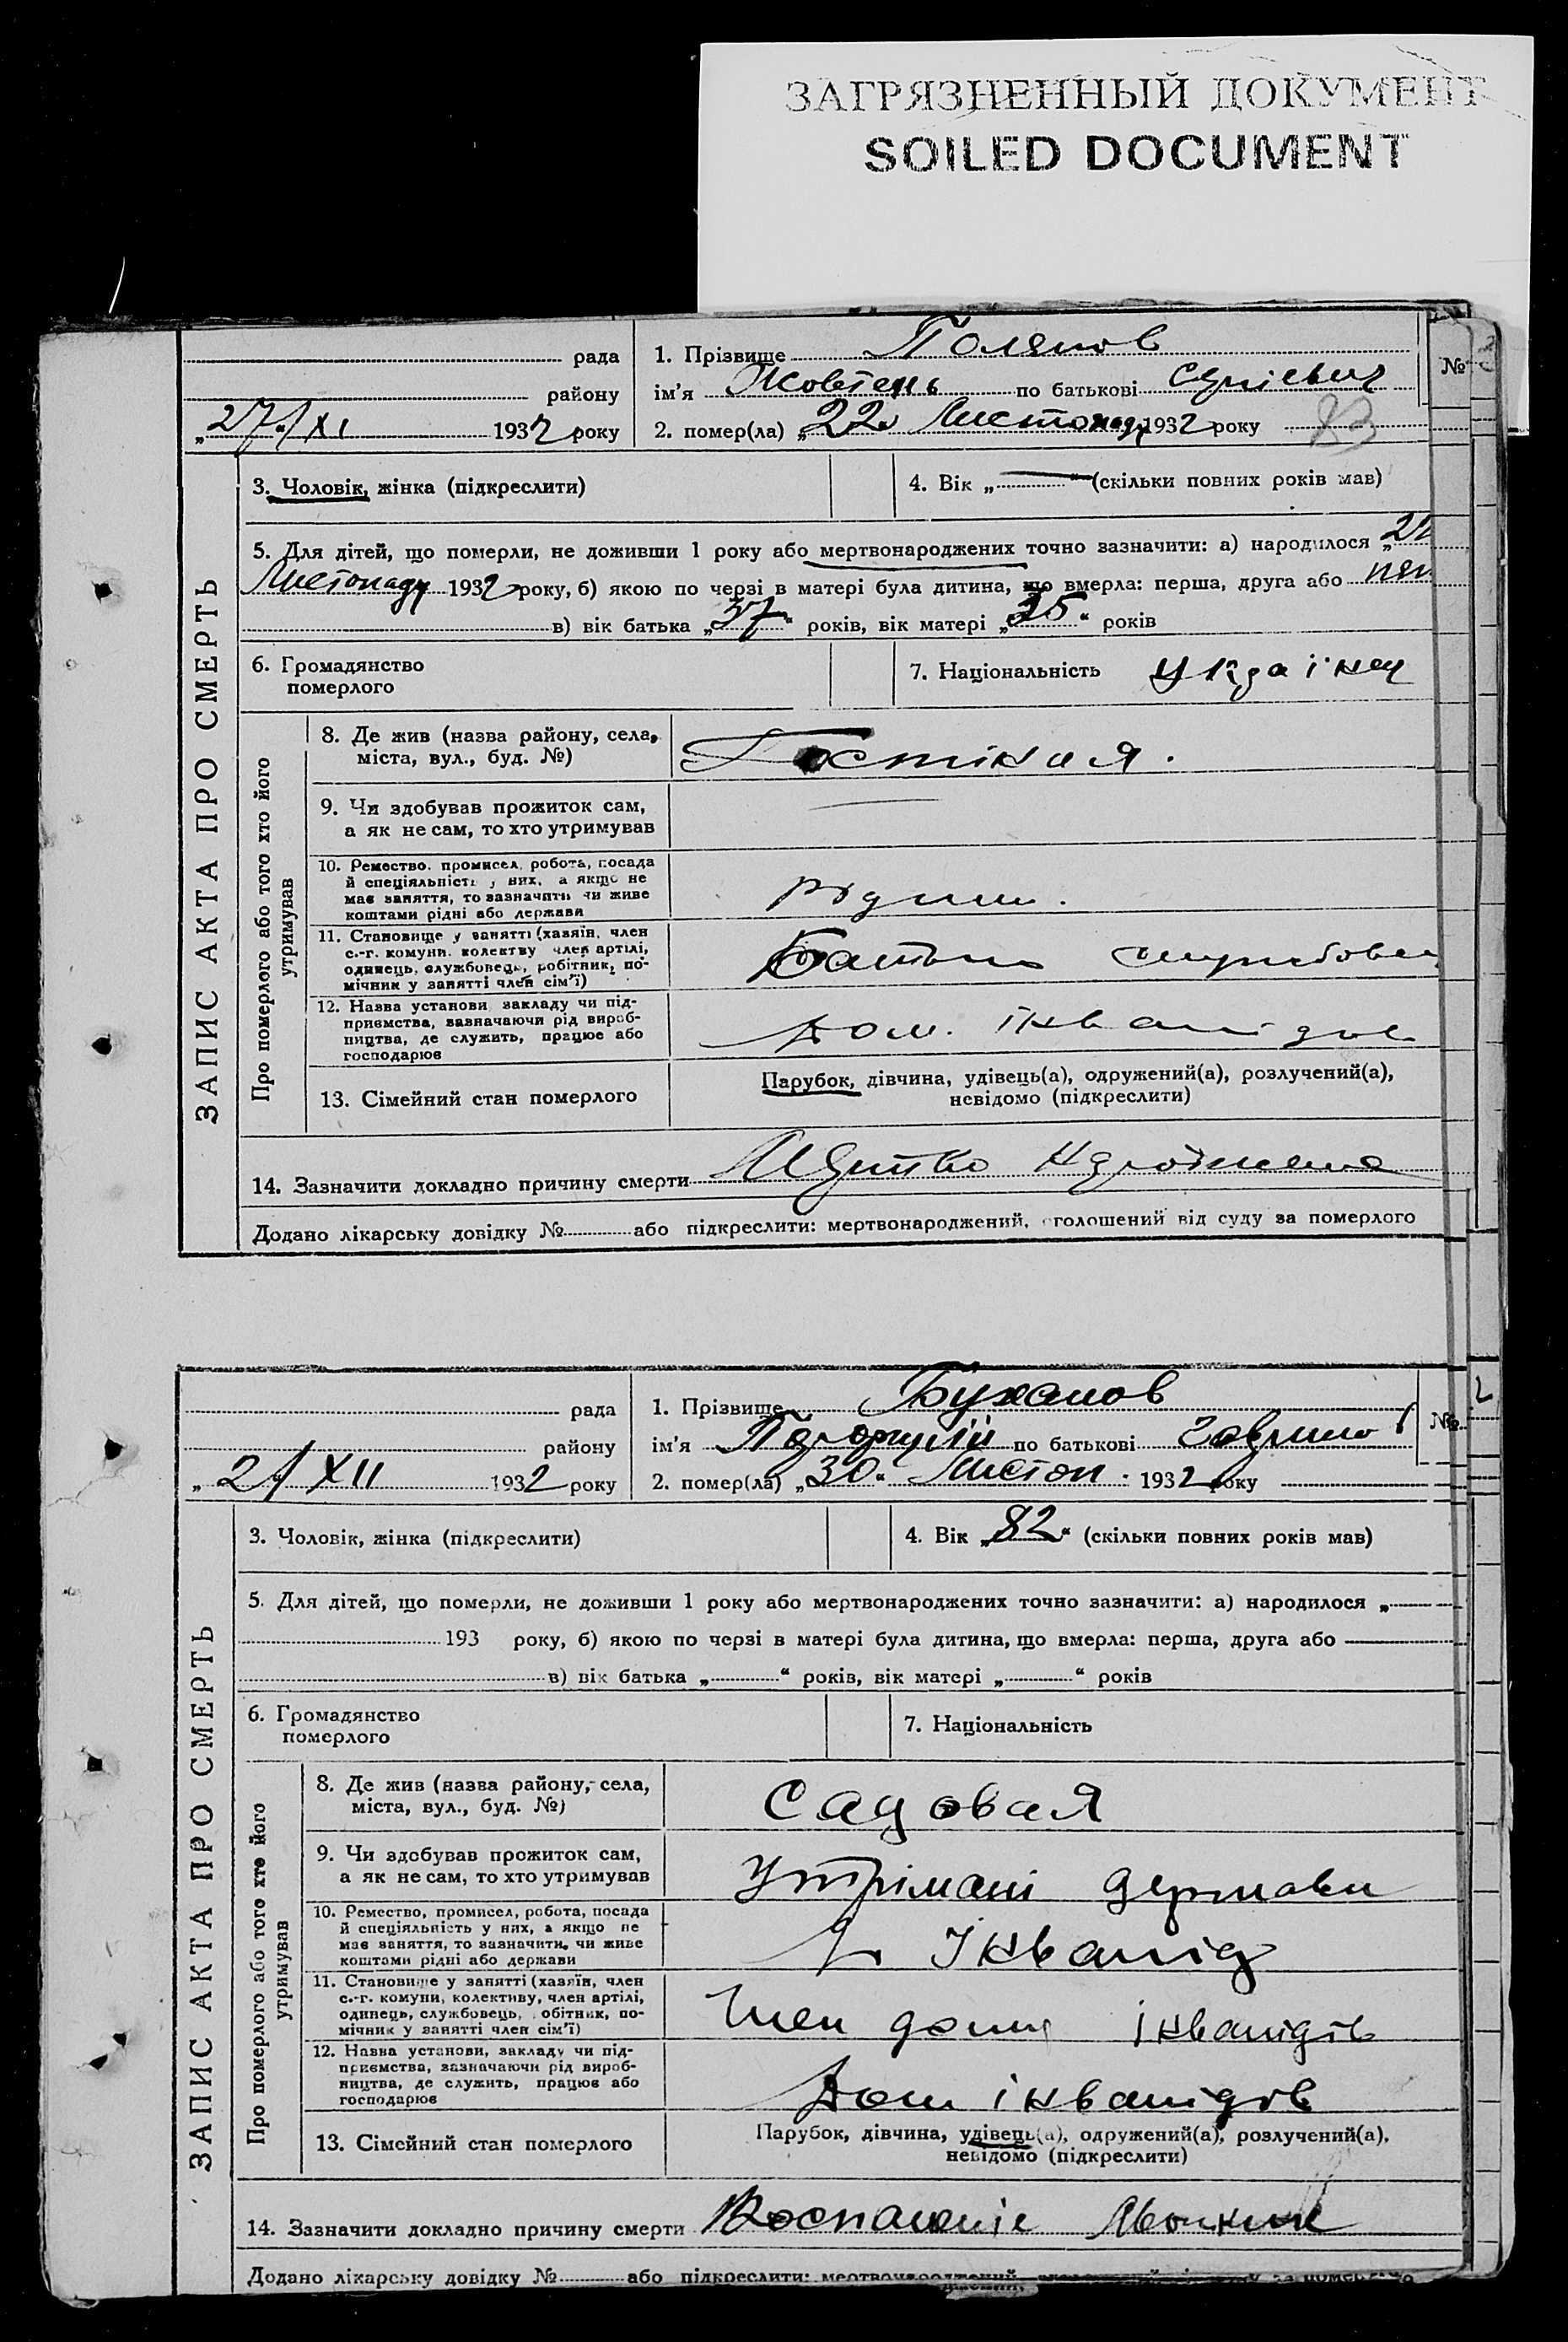 ЗАГРЯЗНЕННЫЙ ДОКУМЕНТ
SOILED DOCUMENT
рада
району
„27/XI 1932 року
1. Прізвище Поляков
ім'я Жовтень по батькові
2. помер(ла) „22" Листопаду 1932 року
№
83
ЗАПИС АКТА ПРО СМЕРТЬ
3. Чоловік, жінка (підкреслити)
4. Вік „—" (скільки повних років мав)
5. Для дітей, що померли, не доживши 1 року або мертвонароджених точно зазначити: а) народилося „
Листопаду 1932 року, б) якою по черзі в матері була дитина, що вмерла: перша, друга або
в) вік батька „37" років, вік матері „35" років
6. Громадянство
померлого
7. Національність Українец
Про померлого або того хто його
утримував
8. Де жив (назва району, села,
міста, вул., буд. №)
9. Чи здобував прожиток сам,
а як не сам, то хто утримував
10. Ремество, промисел, робота, посада
й спеціяльність у них, а якщо не
має заняття, то зазначити чи живе
коштами рідні або держави
11. Становище у занятті (хазяїн, член
с.-г. комуни, колективу член артілі,
одинець, службовець, робітник, по-
мічник у занятті член сім'ї)
Батько службовец
12. Назва установи, закладу чи під-
приємства, зазначаючи рід вироб-
ництва, де служить, працює або
господарює
Дом. інвалідов
13. Сімейний стан померлого
Парубок, дівчина, удівець(а), одружений(а), розлучений(а),
невідомо (підкреслити)
14. Зазначити докладно причину смерти
Додано лікарську довідку № або підкреслити: мертвонароджений, оголошений від суду за померлого
рада
району
„2/XII 1932 року
1. Прізвище Буханов
ім'я по батькові
2. помер(ла) „30" Листоп. 1932 року
№
ЗАПИС АКТА ПРО СМЕРТЬ
3. Чоловік, жінка (підкреслити)
4. Вік „82" (скільки повних років мав)
5. Для дітей, що померли, не доживши 1 року або мертвонароджених точно зазначити: а) народилося „
193 року, б) якою по черзі в матері була дитина, що вмерла: перша, друга або
в) вік батька „ " років, вік матері „ " років
6. Громадянство
померлого
7. Національність
Про померлого або того хто його
утримував
8. Де жив (назва району, села,
міста, вул., буд. №)
Садовая
9. Чи здобував прожиток сам,
а як не сам, то хто утримував
Утрімані держави
10. Ремество, промисел, робота, посада
й спеціяльність у них, а якщо не
має заняття, то зазначити, чи живе
коштами рідні або держави
Інвалід
11. Становище у занятті (хазяїн, член
с.-г. комуни, колективу, член артілі,
одинець, службовець, робітник, по-
мічник у занятті член сім'ї)
Член дому інвалідів
12. Назва установи, закладу чи під-
приємства, зазначаючи рід вироб-
ництва, де служить, працює або
господарює
Дом інвалідов
13. Сімейний стан померлого
Парубок, дівчина, удівець(а), одружений(а), розлучений(а),
невідомо (підкреслити)
14. Зазначити докладно причину смерти Воспаленіе
Додано лікарську довідку № або підкреслити: мертвонароджений